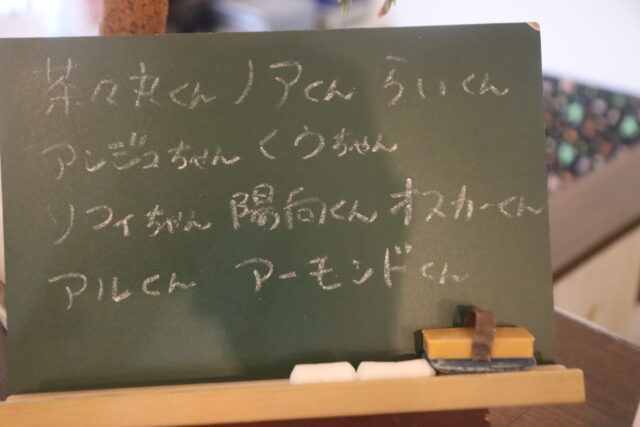 茶々丸くん ノアくん らいくん
アンジュちゃん くうちゃん
ソフィちゃん 陽向くん オスカーくん
アルくん アーモンドくん